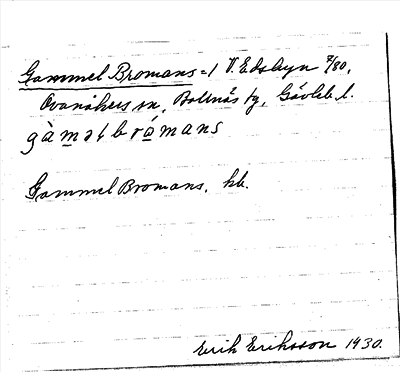 Gammel Bromans = / V. Edsbyn 7/80,
Ovanåkers sn, Bollnäs tg, Gävleb. l.
gàməl brómans
Gammel Bromans, hb.
Erik Eriksson 1930.